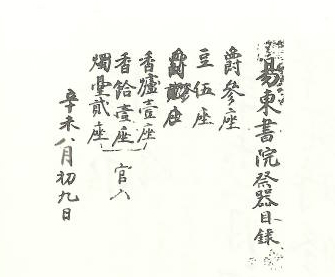 易東書院祭器目錄
爵參座
豆伍座
座
香爐壹座
香餄壹座
燭臺貳座
官入
辛未八月初九日